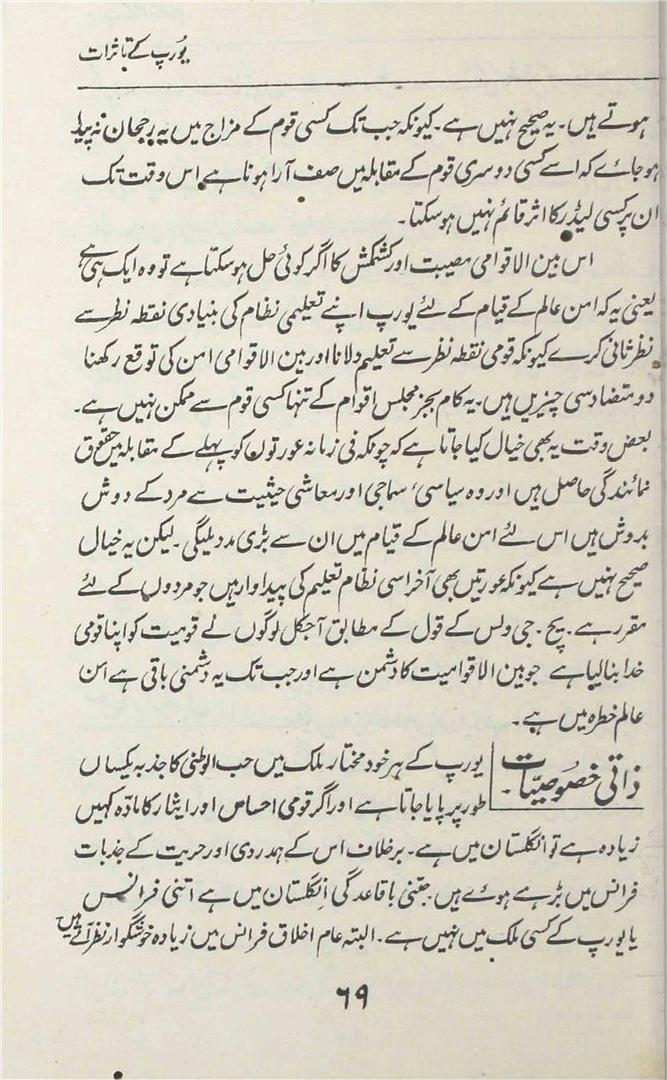 یورپ کے تاثرات
ہوتے ہیں۔ یہ صحیح نہیں ہے۔ کیونکہ جب تک کسی قوم کے مزاج میں یہ رجحان نہ پیدا
ہوجائے کہ اسے کسی دوسری قوم کے مقابلہ میں صف آرا ہونا ہے اس وقت تک
ان پر کسی لیڈر کا اثر قائم نہیں ہوسکتا۔
اس بین الاقوامی مصیبت اور کشمکش کا اگر کوئی حل ہوسکتا ہے تو وہ ایک ہی ہے
یعنی یہ کہ امن عالم کے قیام کے لئے یورپ اپنے تعلیمی نظام کی بنیادی نقطہ نظر سے
نظر ثانی کرے کیونکہ قومی نقطہ نظر سے تعلیم دلانا اور بین الاقوامی امن کی توقع رکھنا
دو متضاد سی چیزیں ہیں۔ یہ کام بجز مجلس اقوام کے تنہا کسی قوم سے ممکن نہیں ہے۔
بعض وقت یہ بھی خیال کیا جاتا ہے کہ چونکہ فی زمانہ عورتوں کو پہلے کے مقابلہ میں حقوق
نمائندگی حاصل ہیں اور وہ سیاسی، سماجی اور معاشی حیثیت سے مرد کے دوش
بدوش ہیں اس لئے امن عالم کے قیام میں ان سے بڑی مدد ملیگی۔ لیکن یہ خیال
صحیح نہیں ہے کیونکہ عورتیں بھی آخر اسی نظام تعلیم کی پیداوار ہیں جو مردوں کے لئے
مقرر ہے۔ یچ۔ جی ولس کے قول کے مطابق آجکل لوگوں نے قومیت کو اپنا قومی
خدا بنالیا ہے جو بین الاقوامیت کا دشمن ہے اور جب تک یہ دشمنی باقی ہے امن
عالم خطرہ میں ہے۔
ذاتی خصوصیّات۔
یورپ کے ہر خود مختار ملک میں حب الوطنی کا جذبہ یکساں
طور پر پایا جاتا ہے اور اگر قومی احساس اور ایثار کا مادّہ کہیں
زیادہ ہے تو انگلستان میں ہے۔ برخلاف اس کے ہمدردی اور حریت کے جذبات
فرانس میں بڑہے ہوئے ہیں۔ جتنی باقاعدگی انگلستان میں ہے اتنی فرانس
یا یورپ کے کسی ملک میں نہیں ہے۔ البتہ عام اخلاق فرانس میں زیادہ خوشگوار نظر آتے ہیں
۶۹